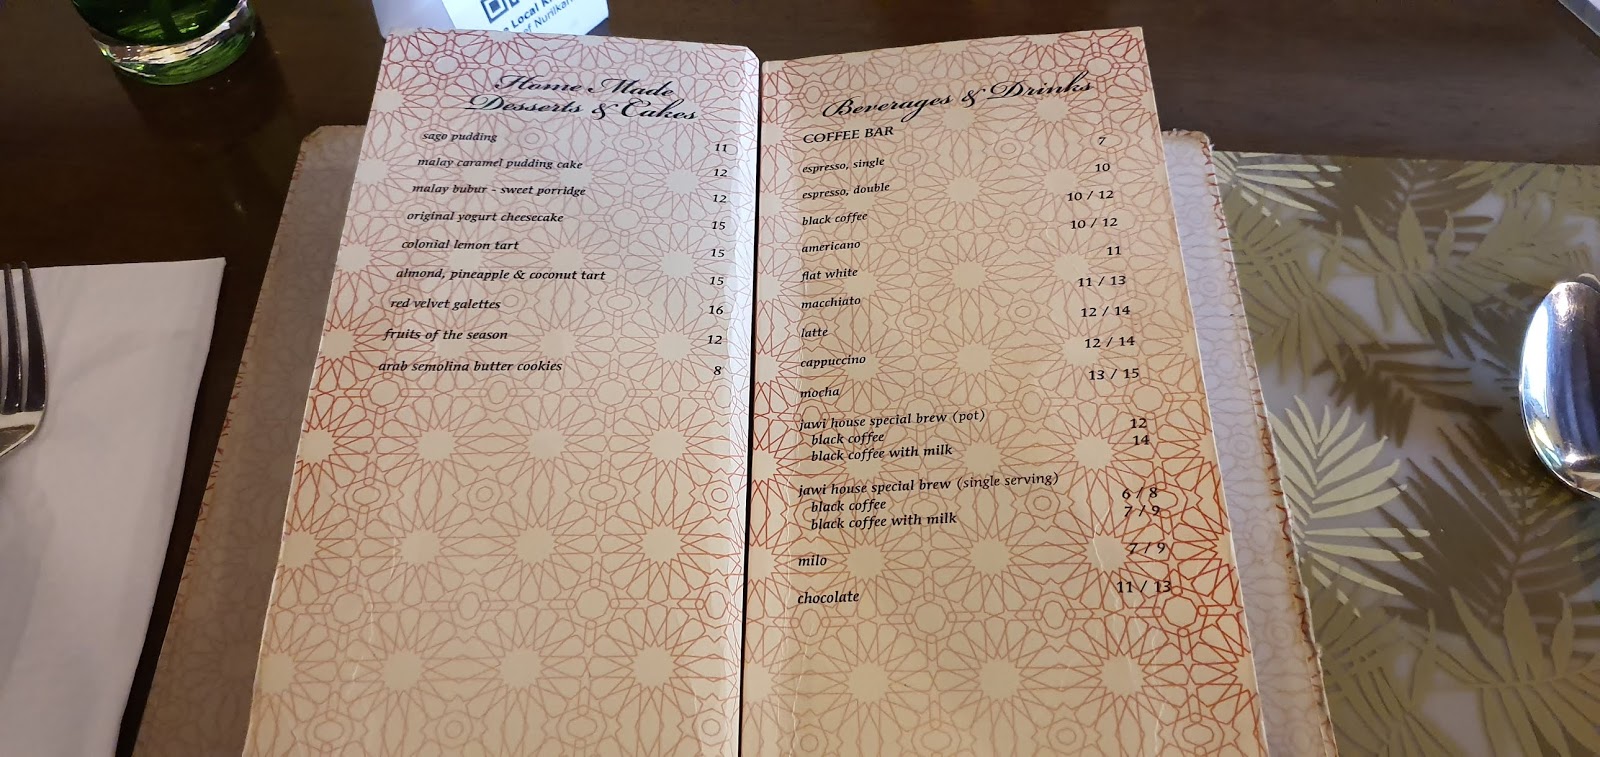 Local
Home Made
Desserts & Cakes
sago pudding 11
malay caramel pudding cake 12
malay bubur - sweet porridge 12
original yogurt cheesecake 15
colonial lemon tart 15
almond, pineapple & coconut tart 15
red velvet galettes 16
fruits of the season 12
arab semolina butter cookies 8
Beverages & Drinks
COFFEE BAR
espresso, single 7
espresso, double 10
black coffee 10 / 12
americano 10 / 12
flat white 11
macchiato 11 / 13
latte 12 / 14
cappuccino 12 / 14
mocha 13 / 15
jawi house special brew (pot)
black coffee 12
black coffee with milk 14
jawi house special brew (single serving)
black coffee 6 / 8
black coffee with milk 7 / 9
milo 7 / 9
chocolate 11 / 13